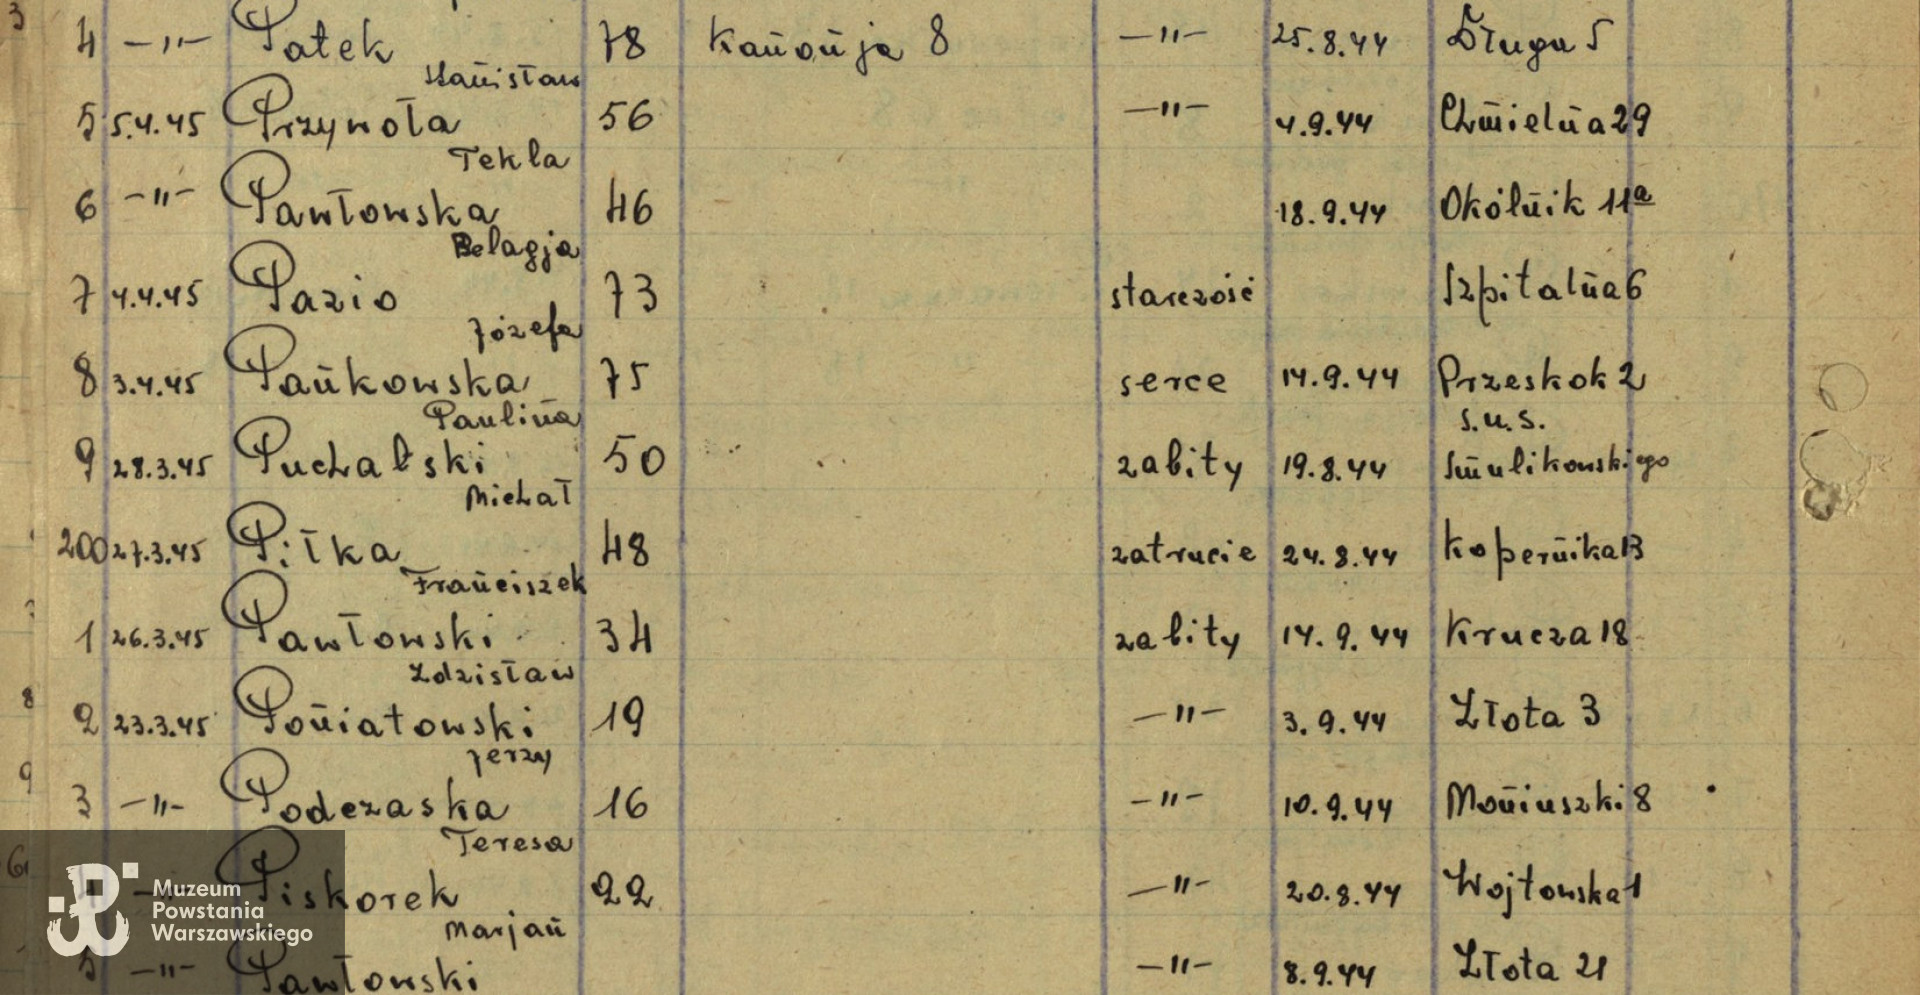 3
4 —"— Patek 78 Kanonja 8 —"— 25.8.44 Długa 5
Stanisław
5 5.4.45 Przywoła 56 —"— 4.9.44 Chmielna 29
Tekla
6 —"— Pawłowska 46 18.9.44 Okólnik 11a
Pelagja
7 4.4.45 Pazio 73 starczość Szpitalna 6
Józefa
8 3.4.45 Pankowska 75 serce 14.9.44 Przeskok 2
Paulina S.u.S.
9 28.3.45 Puchalski 50 zabity 19.8.44 Smulikowskiego
Michał
200 27.3.45 Piłka 48 zatrucie 24.8.44 Kopernika 13
Franciszek
1 26.3.45 Pawłowski 34 zabity 14.9.44 Krucza 18
Zdzisław
8
2 23.3.45 Poniatowski 19 —"— 3.9.44 Złota 3
Jerzy
9
3 —"— Podczaska 16 —"— 10.9.44 Moniuszki 8
Teresa
6
4 —"— Piskorek 22 —"— 20.8.44 Wojtowska 1
Marjan
5 —"— Pawłowski —"— 8.9.44 Złota 21
Muzeum
Powstania
Warszawskiego